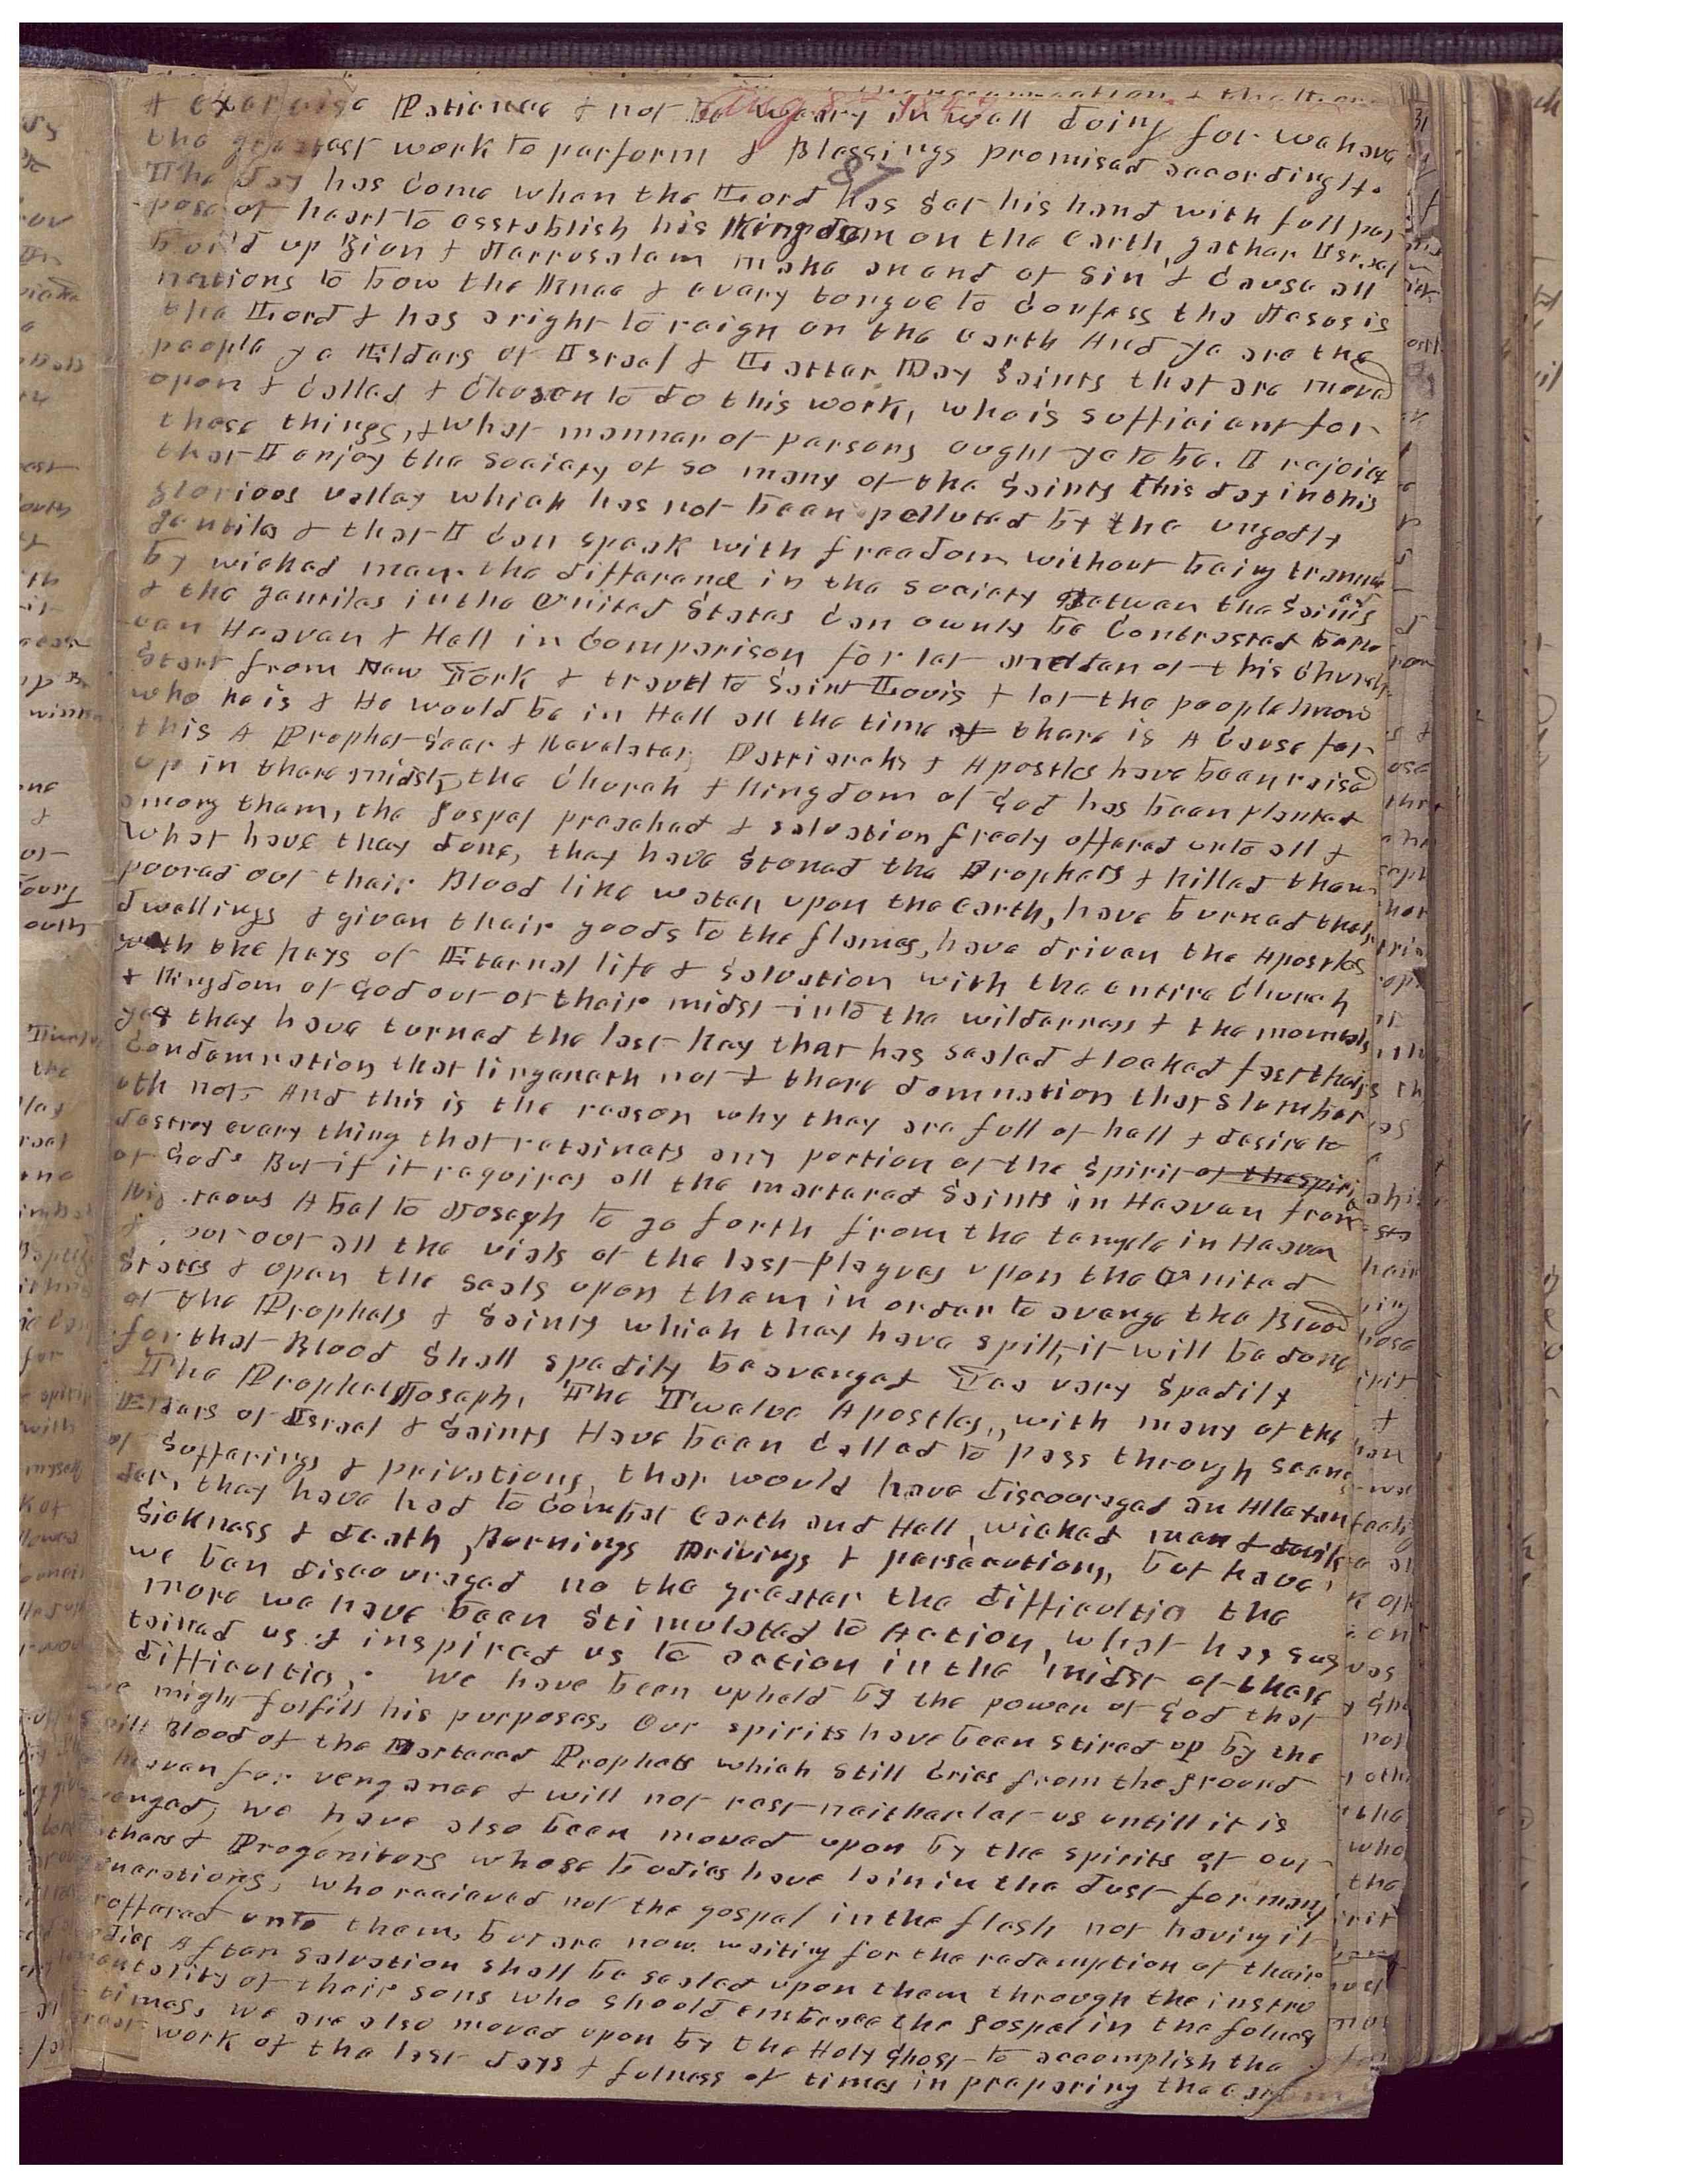 & exercise Patience & not be weary in well doing for we have
the greatest work to perform & Blessings promised according to
The day has Come when the Lord has set his hand with full pur
pose of heart to esstablish his Kingdom on the earth, gather Israel
build up Zion & Jerrusalem make an end of Sin & Cause all
nations to bow the Knee & every tongue to Confess tha Jesus is
the Lord & has a right to reign on the earth And ye are the
people ye Elders of Israel & Latter Day Saints that are moved
upon & Called & Chosen to do this work, who is sufficient for
those things, & what manner of persons ought ye to be. I rejoice
that I enjoy the society of so many of the Saints this day in this
glorious valley which has not been polluted by the ungodly
gentiles & that I Can speak with freedom without being trammeled
by wicked men. the differance in the society Between the Saints
& the gentiles in the United States Can ownly be Contrasted betw
een Heaven & Hell in Comparison for let an elder of this Church
Start from New York & travel to Saint Louis & let the people know
who he is & He would be in Hell all the time there is A Cause for
this A Prophet Seer & Revelator, Patriarchs & Apostles have been raised
up in there midst, the Church & Kingdom of God has been planted
among them, the gospel preached & salvation freely offered unto all &
What have they done, they have Stoned the Prophets & killed them
poured out their Blood like water upon the earth, have burned their
dwellings & given their goods to the flames, have driven the Apostles
with the keys of Eternal life & Salvation with the entire Church
& Kingdom of God out of their midst into the wilderness & the mountains
yes they have turned the last Key that has sealed & locked fast their
Condemnation that lingereth not & there damnation that slumber
eth not. And this is the reason why they are full of hell & desire to
destroy every thing that retainets any portion of the Spirit of the spirit
of God. But if it requires all the martered Saints in Heavan from
Righteous Abel to Joseph to go forth from the temple in Heaven
& pour out all the vials of the last plagues upon the United
States & open the seals upon them in order to avenge the Blood
of the Prophets & Saints which they have spilt, it will be done
for that Blood Shall spedily be avenged Yea very Spedily
The Prophet Joseph, The Twelve Apostles, with many of the
Elders of Israel & Saints Have been Called to pass through scens
of sufferings & privations, that would have discouraged an Allexan
der, they have had to Combat earth and Hell, wicked men & devils
Sickness & death, Burnings Drivings & persecutions, but have
we ben discouraged no the greater the difficulties the
more we have been Stimulated to Action, what has sus
tained us & inspired us to action in the midst of these
difficulties,. We have been upheld by the power of God that
we might fulfill his purposes, Our spirits have been stired up by the
spilt Blood of the Martered Prophets which still Cries from the ground
heavan for vengance & will not rest neither let us untill it is
avenged, we have also been moved upon by the spirits of our
Fathers & Progenitors whose bodies have lain in the dust for many
generations, who recieved not the gospel in the flesh not having it
offered unto them, but are now waiting for the redemption of their
bodies After salvation shall be sealed upon them through the instru
mentality of their sons who should embrace the gospel in the fulness
of times, we are also moved upon by the Holy Ghost to accomplish the
great work of the last days & fulness of times in preparing the earth